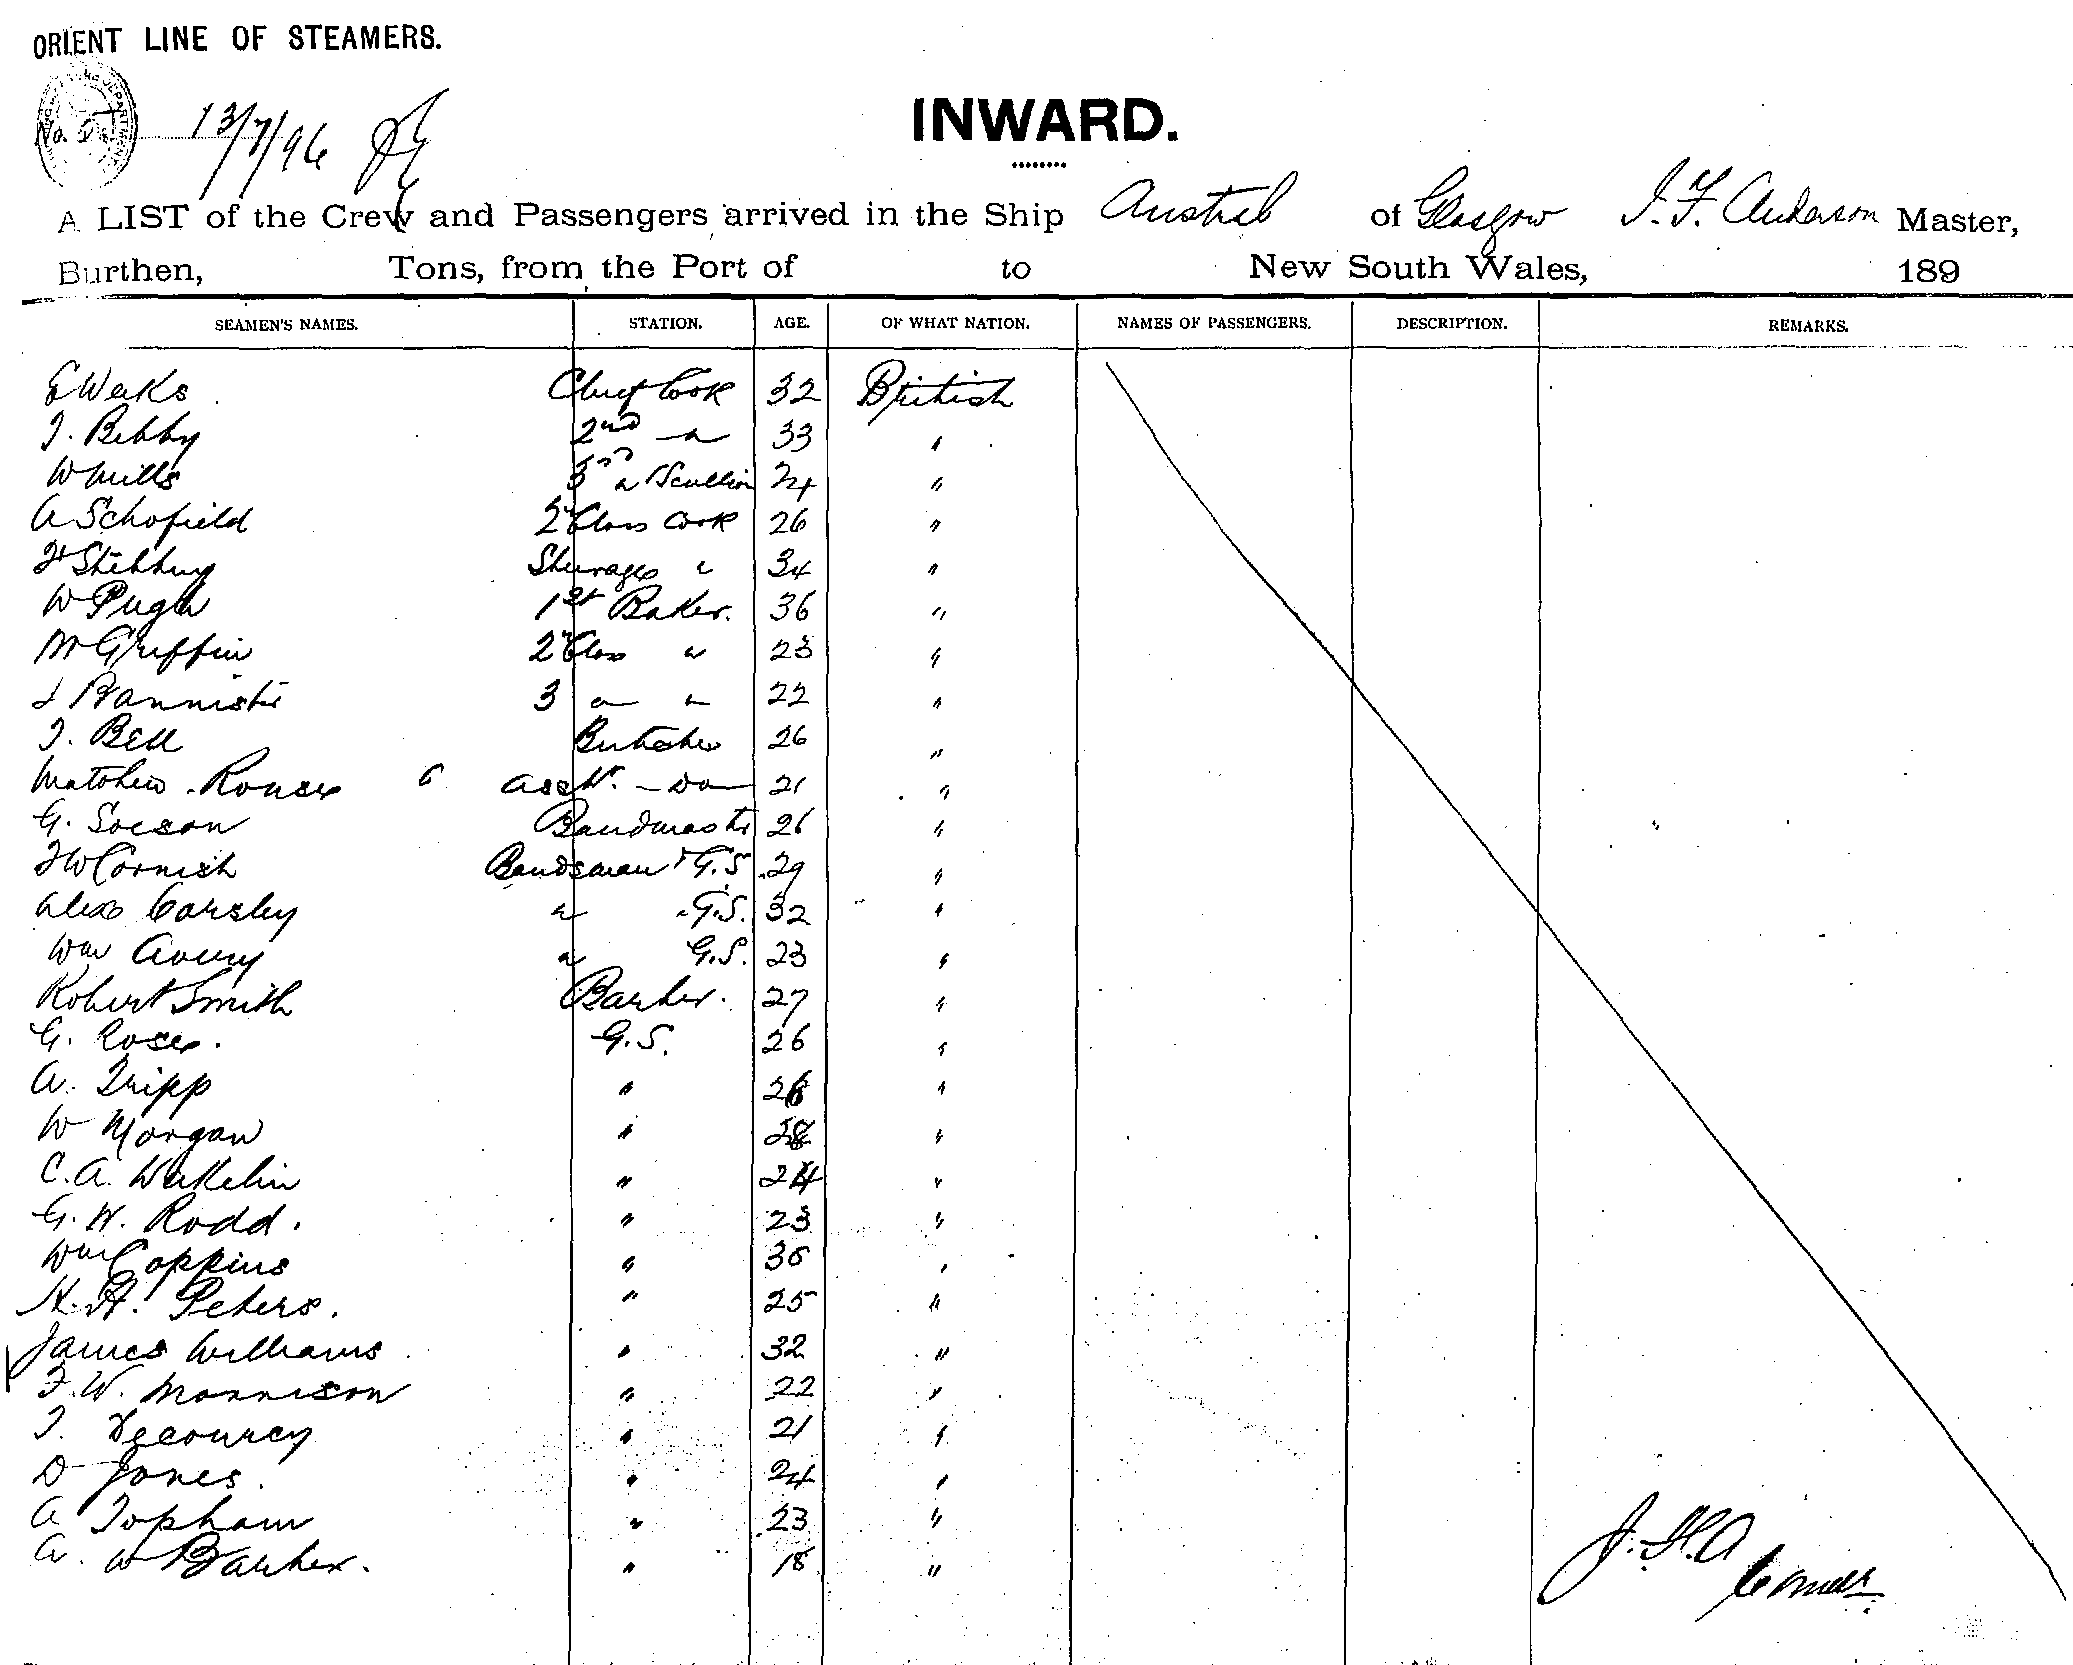 ORIENT LINE OF STEAMERS.
No.
13/7/96
INWARD.
A LIST of the Crew and Passengers arrived in the Ship Austral of Glasgow J. F. Anderson Master,
Burthen, Tons, from the Port of to New South Wales, 189
SEAMEN'S NAMES. STATION. AGE. OF WHAT NATION. NAMES OF PASSENGERS. DESCRIPTION. REMARKS.
E Weeks Chief Cook 32 British
J. Bibby 2nd " 33 "
W Mills 3rd " Scullion 24 "
A Schofield 2 Class Cook 26 "
Steerage " 34 "
W Pugh 1st Baker. 36 "
M Griffin 2 Class " 23 "
J Bannister 3 " " 22 "
J. Bell Butcher 26 "
Mathew Rouse Asst. - Do - 21 "
G. Bandmaster 26 "
J W Cornish Bandsman & G.S 29 "
Alex Carsley " " G.S. 32 "
Wm Avery " G.S. 23 "
Robert Smith Barber. 27 "
G. Rose. G.S. 26 "
A. Tripp " "
W Morgan " "
C. A. Wakelin " 24 "
G. W. Rodd. " 23 "
Wm Coppins " "
H. H. Peters. " 25 "
James Williams " 32 "
F. W. Morrison " 22 "
J. Decourcy " 21 "
D Jones. " 24 "
A Topham " 23 "
A. W Barber. " 18 "
J. F. A
Comdr